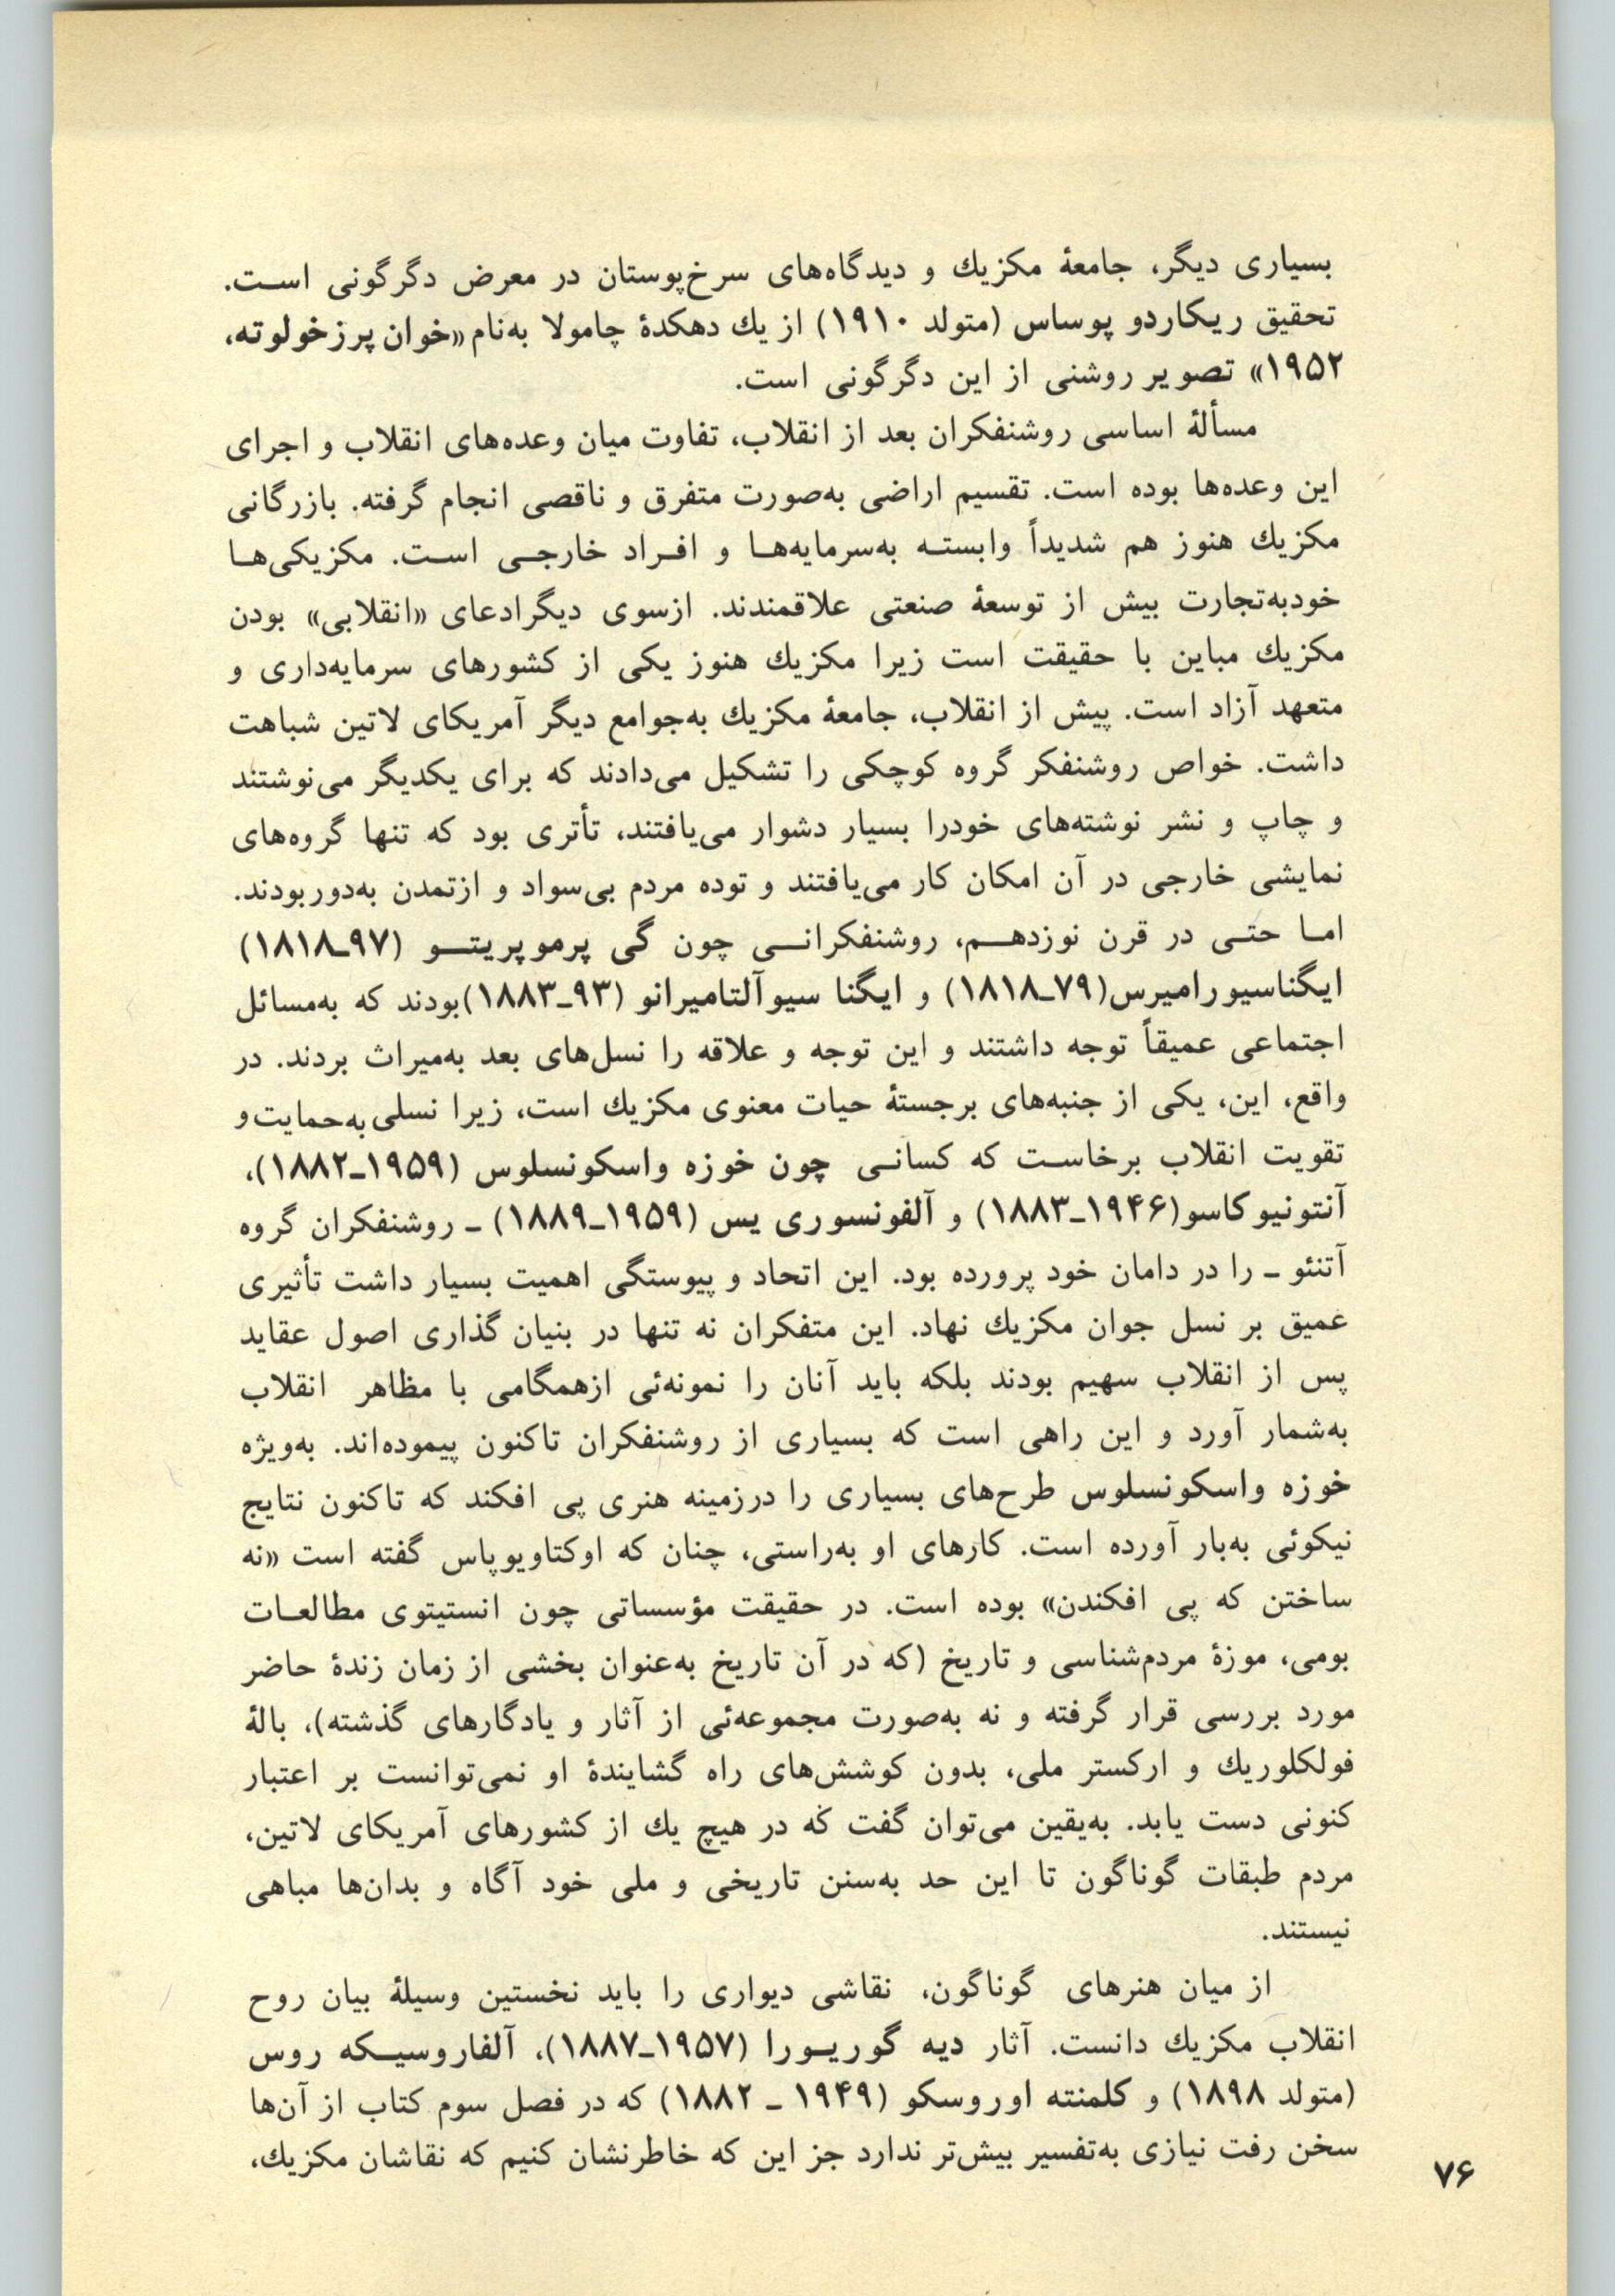 بسیاری دیگر، جامعهٔ مکزیك و دیدگاه‌های سرخ‌پوستان در معرض دگرگونی است.
تحقیق ریکاردو پوساس (متولد ۱۹۱۰) از یك دهکدهٔ چامولا به‌نام «خوان پرزخولوته،
۱۹۵۲» تصویر روشنی از این دگرگونی است.
مسألهٔ اساسی روشنفکران بعد از انقلاب، تفاوت میان وعده‌های انقلاب و اجرای
این وعده‌ها بوده است. تقسیم اراضی به‌صورت متفرق و ناقصی انجام گرفته. بازرگانی
مکزیك هنوز هم شدیداً وابسته به‌سرمایه‌ها و افراد خارجی است. مکزیکی‌ها
خودبه‌تجارت بیش از توسعهٔ صنعتی علاقمندند. ازسوی دیگرادعای «انقلابی» بودن
مکزیك مباین با حقیقت است زیرا مکزیك هنوز یکی از کشورهای سرمایه‌داری و
متعهد آزاد است. پیش از انقلاب، جامعهٔ مکزیك به‌جوامع دیگر آمریکای لاتین شباهت
داشت. خواص روشنفکر گروه کوچکی را تشکیل می‌دادند که برای یکدیگر می‌نوشتند
و چاپ و نشر نوشته‌های خودرا بسیار دشوار می‌یافتند، تأتری بود که تنها گروه‌های
نمایشی خارجی در آن امکان کار می‌یافتند و توده مردم بی‌سواد و ازتمدن به‌دوربودند.
اما حتی در قرن نوزدهم، روشنفکرانی چون گی پرموپریتو (۹۷ـ۱۸۱۸)
ایگناسیورامیرس(۷۹ـ۱۸۱۸) و ایگنا سیوآلتامیرانو (۹۳ـ۱۸۸۳)بودند که به‌مسائل
اجتماعی عمیقاً توجه داشتند و این توجه و علاقه را نسل‌های بعد به‌میراث بردند. در
واقع، این، یکی از جنبه‌های برجستهٔ حیات معنوی مکزیك است، زیرا نسلی به‌حمایت و
تقویت انقلاب برخاست که کسانی چون خوزه واسکونسلوس (۱۹۵۹ـ۱۸۸۲)،
آنتونیوکاسو(۱۹۴۶ـ۱۸۸۳) و آلفونسوری یس (۱۹۵۹ـ۱۸۸۹) ـ روشنفکران گروه
آتنئو ـ را در دامان خود پرورده بود. این اتحاد و پیوستگی اهمیت بسیار داشت تأثیری
عمیق بر نسل جوان مکزیك نهاد. این متفکران نه تنها در بنیان گذاری اصول عقاید
پس از انقلاب سهیم بودند بلکه باید آنان را نمونه‌ئی ازهمگامی با مظاهر انقلاب
به‌شمار آورد و این راهی است که بسیاری از روشنفکران تاکنون پیموده‌اند. به‌ویژه
خوزه واسکونسلوس طرح‌های بسیاری را درزمینه هنری پی افکند که تاکنون نتایج
نیکوئی به‌بار آورده است. کارهای او به‌راستی، چنان که اوکتاویوپاس گفته است «نه
ساختن که پی افکندن» بوده است. در حقیقت مؤسساتی چون انستیتوی مطالعات
بومی، موزهٔ مردم‌شناسی و تاریخ (که در آن تاریخ به‌عنوان بخشی از زمان زندهٔ حاضر
مورد بررسی قرار گرفته و نه به‌صورت مجموعه‌ئی از آثار و یادگارهای گذشته)، بالهٔ
فولکلوریك و ارکستر ملی، بدون کوشش‌های راه گشایندهٔ او نمی‌توانست بر اعتبار
کنونی دست یابد. به‌یقین می‌توان گفت که در هیچ یك از کشورهای آمریکای لاتین،
مردم طبقات گوناگون تا این حد به‌سنن تاریخی و ملی خود آگاه و بدان‌ها مباهی
نیستند.
از میان هنرهای گوناگون، نقاشی دیواری را باید نخستین وسیلهٔ بیان روح
انقلاب مکزیك دانست. آثار دیه گوریورا (۱۹۵۷ـ۱۸۸۷)، آلفاروسیکه روس
(متولد ۱۸۹۸) و کلمنته اوروسکو (۱۹۴۹ ـ ۱۸۸۲) که در فصل سوم کتاب از آن‌ها
سخن رفت نیازی به‌تفسیر بیش‌تر ندارد جز این که خاطرنشان کنیم که نقاشان مکزیك،
۷۶